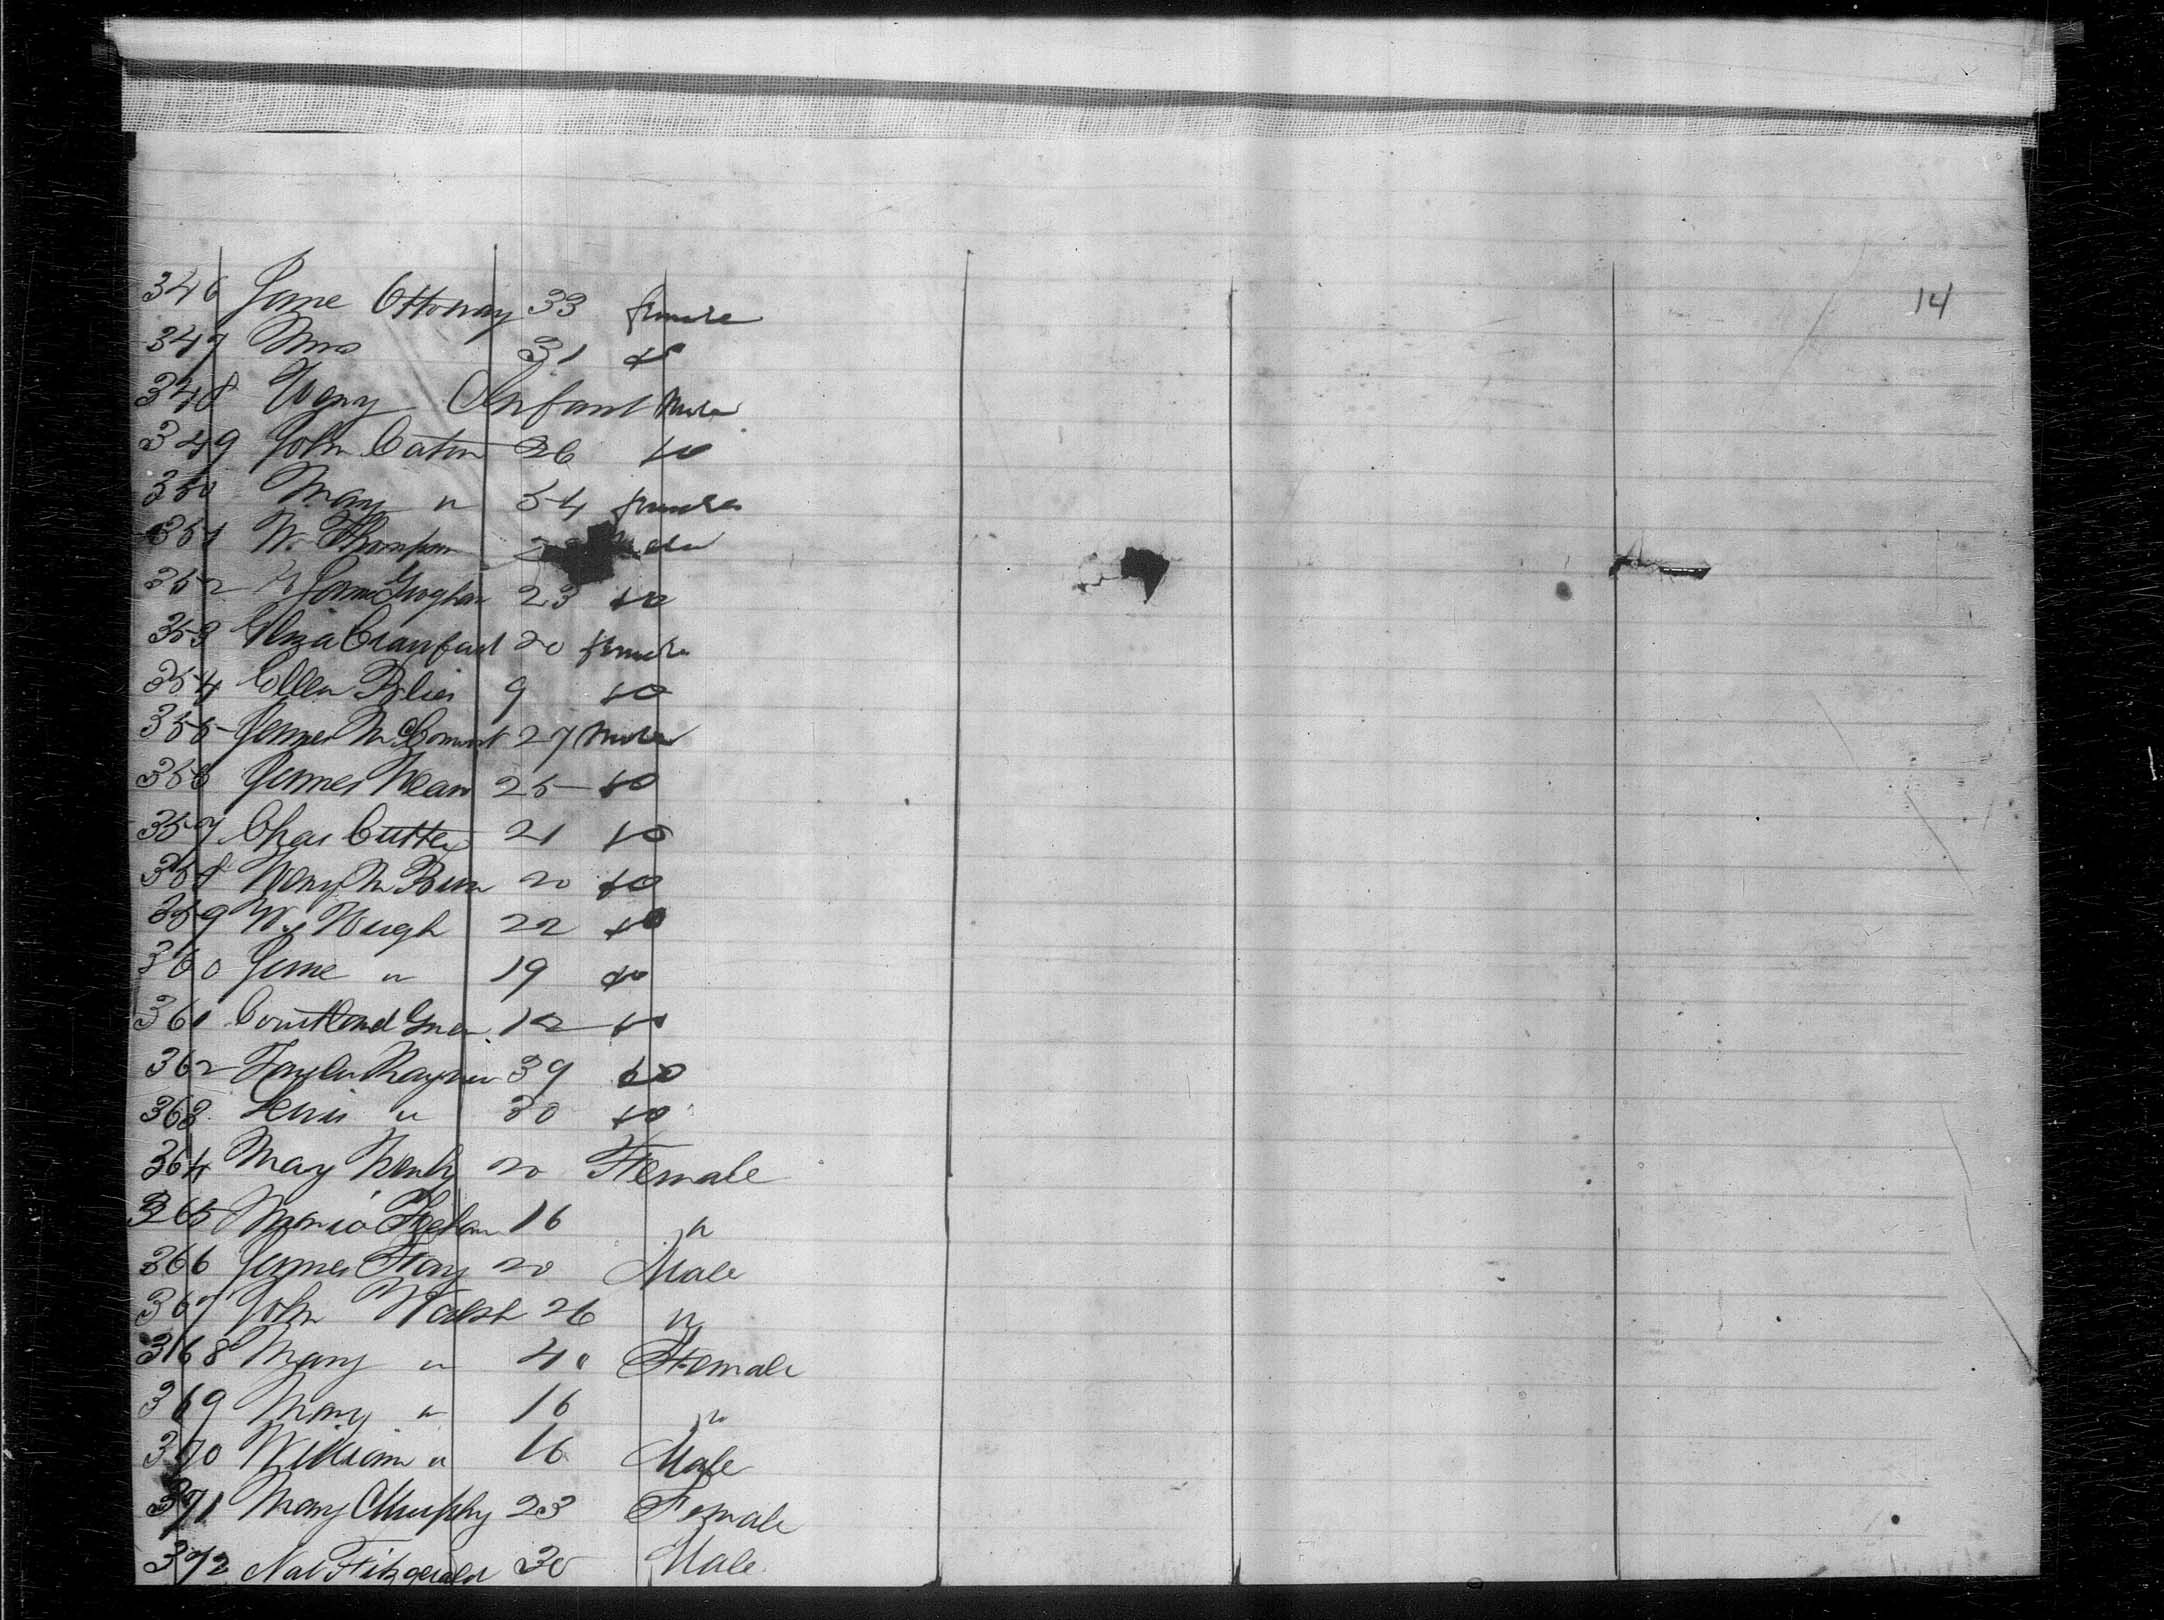 14
346 Jane Ottoway 33 female
347 Mrs 31 do
348 Henry Infant Male
349 John Caton 26 do
350 Mary " 54 female
351 W. Thompson 2 Male
352 Grogham 23 do
353 Eliza Crawford 20 female
354 Ellen 9 do
355 James 27 Male
356 James Kean 25 do
357 Chas Cutter 21 do
358 Henry 20 do
359 Wm Hugh 22 do
360 Jane " 19 do
361 Courtland 12 do
362 39 do
363 Lewis " 30 do
364 Mary 20 Female
365 Maria 16 "
366 James 20 Male
367 John Walsh 26 "
368 Mary " 40 Female
369 Mary " 16 "
370 William " 16 Male
371 Mary Murphy 23 Female
372 Nat Fitzgerald 30 Male